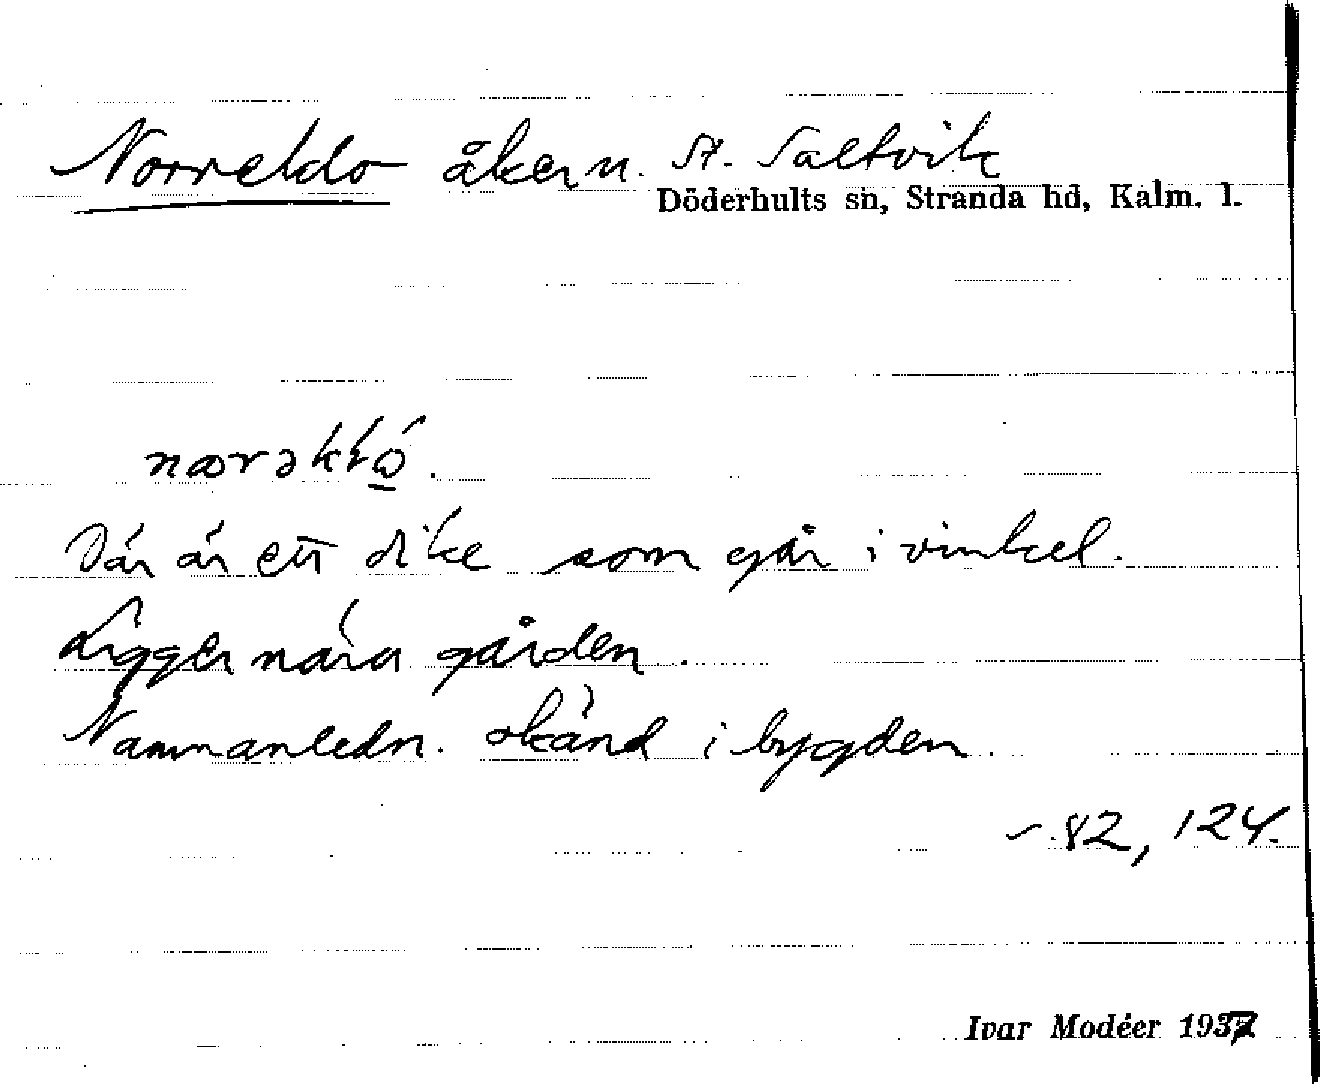 Norreklo åkern. St. Saltvik
Döderhults sn, Stranda hd, Kalm. l.
Där är ett dike som går i vinkel.
Ligger nära gården.
Namnanledn. okänd i bygden.
82, 124.
Ivar Modéer 1937